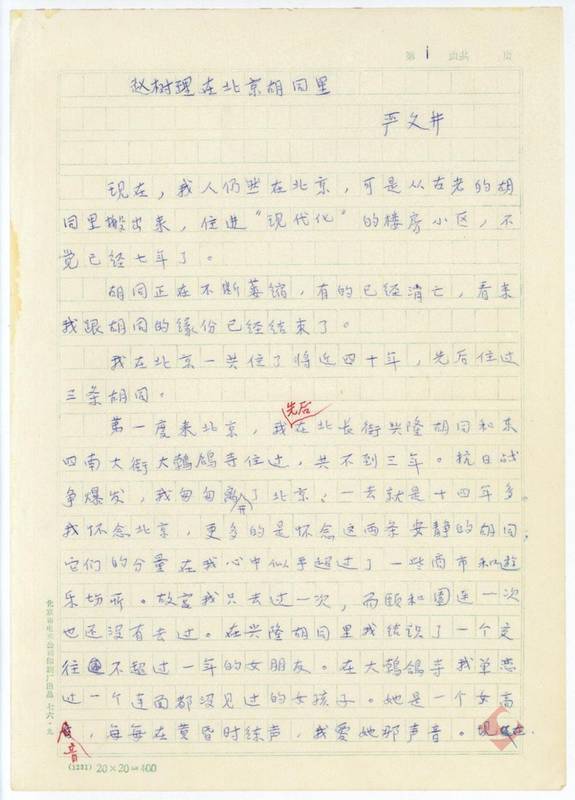 第 1 页共 页
赵树理在北京胡同里
严文井
现在，我人仍然在北京，可是从古老的胡
同里搬出来，住进“现代化”的楼房小区，不
觉已经七年了。
胡同正在不断萎缩，有的已经消亡，看来
我跟胡同的缘份已经结束了。
我在北京一共住了将近四十年，先后住过
三条胡同。
第一度来北京，我先后在北长街兴隆胡同和东
四南大街大鹁鸽寺住过，共不到三年。抗日战
争爆发，我匆匆离开了北京，一去就是十四年多。
我怀念北京，更多的是怀念这两条安静的胡同；
它们的分量在我心中似乎超过了一些商市和游
乐场所。故宫我只去过一次，而颐和园连一次
也还没有去过。在兴隆胡同里我结识了一个交
往不超过一年的女朋友。在大鹁鸽寺我单恋
过一个连面都没见过的女孩子。她是一个女高
音，每每在黄昏时练声，我爱她那声音。现在
北京市电车公司印刷厂出品 七六·九
(1231) 20×20=400